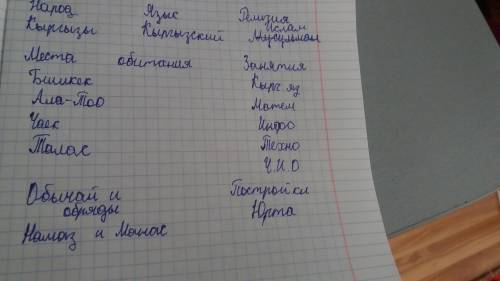 Народ Язык Религия
Ислам
Кыргызы Кыргызский Мусульман
Места обитания Занятия
Бишкек Кырг яз
Ала-Тоо Матем
Чаек Инфо
Талас Техно
Ч.И.О
Обычай и Постройки
обряды Юрта
Намаз и Манас